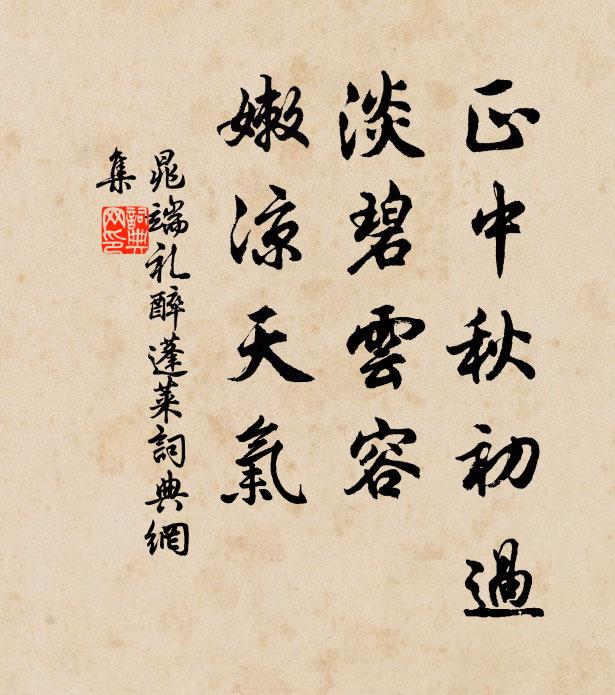 正中秋初過
淡碧雲容
嫩涼天氣
晁端礼醉蓬萊詞典網
集
詞典
网印